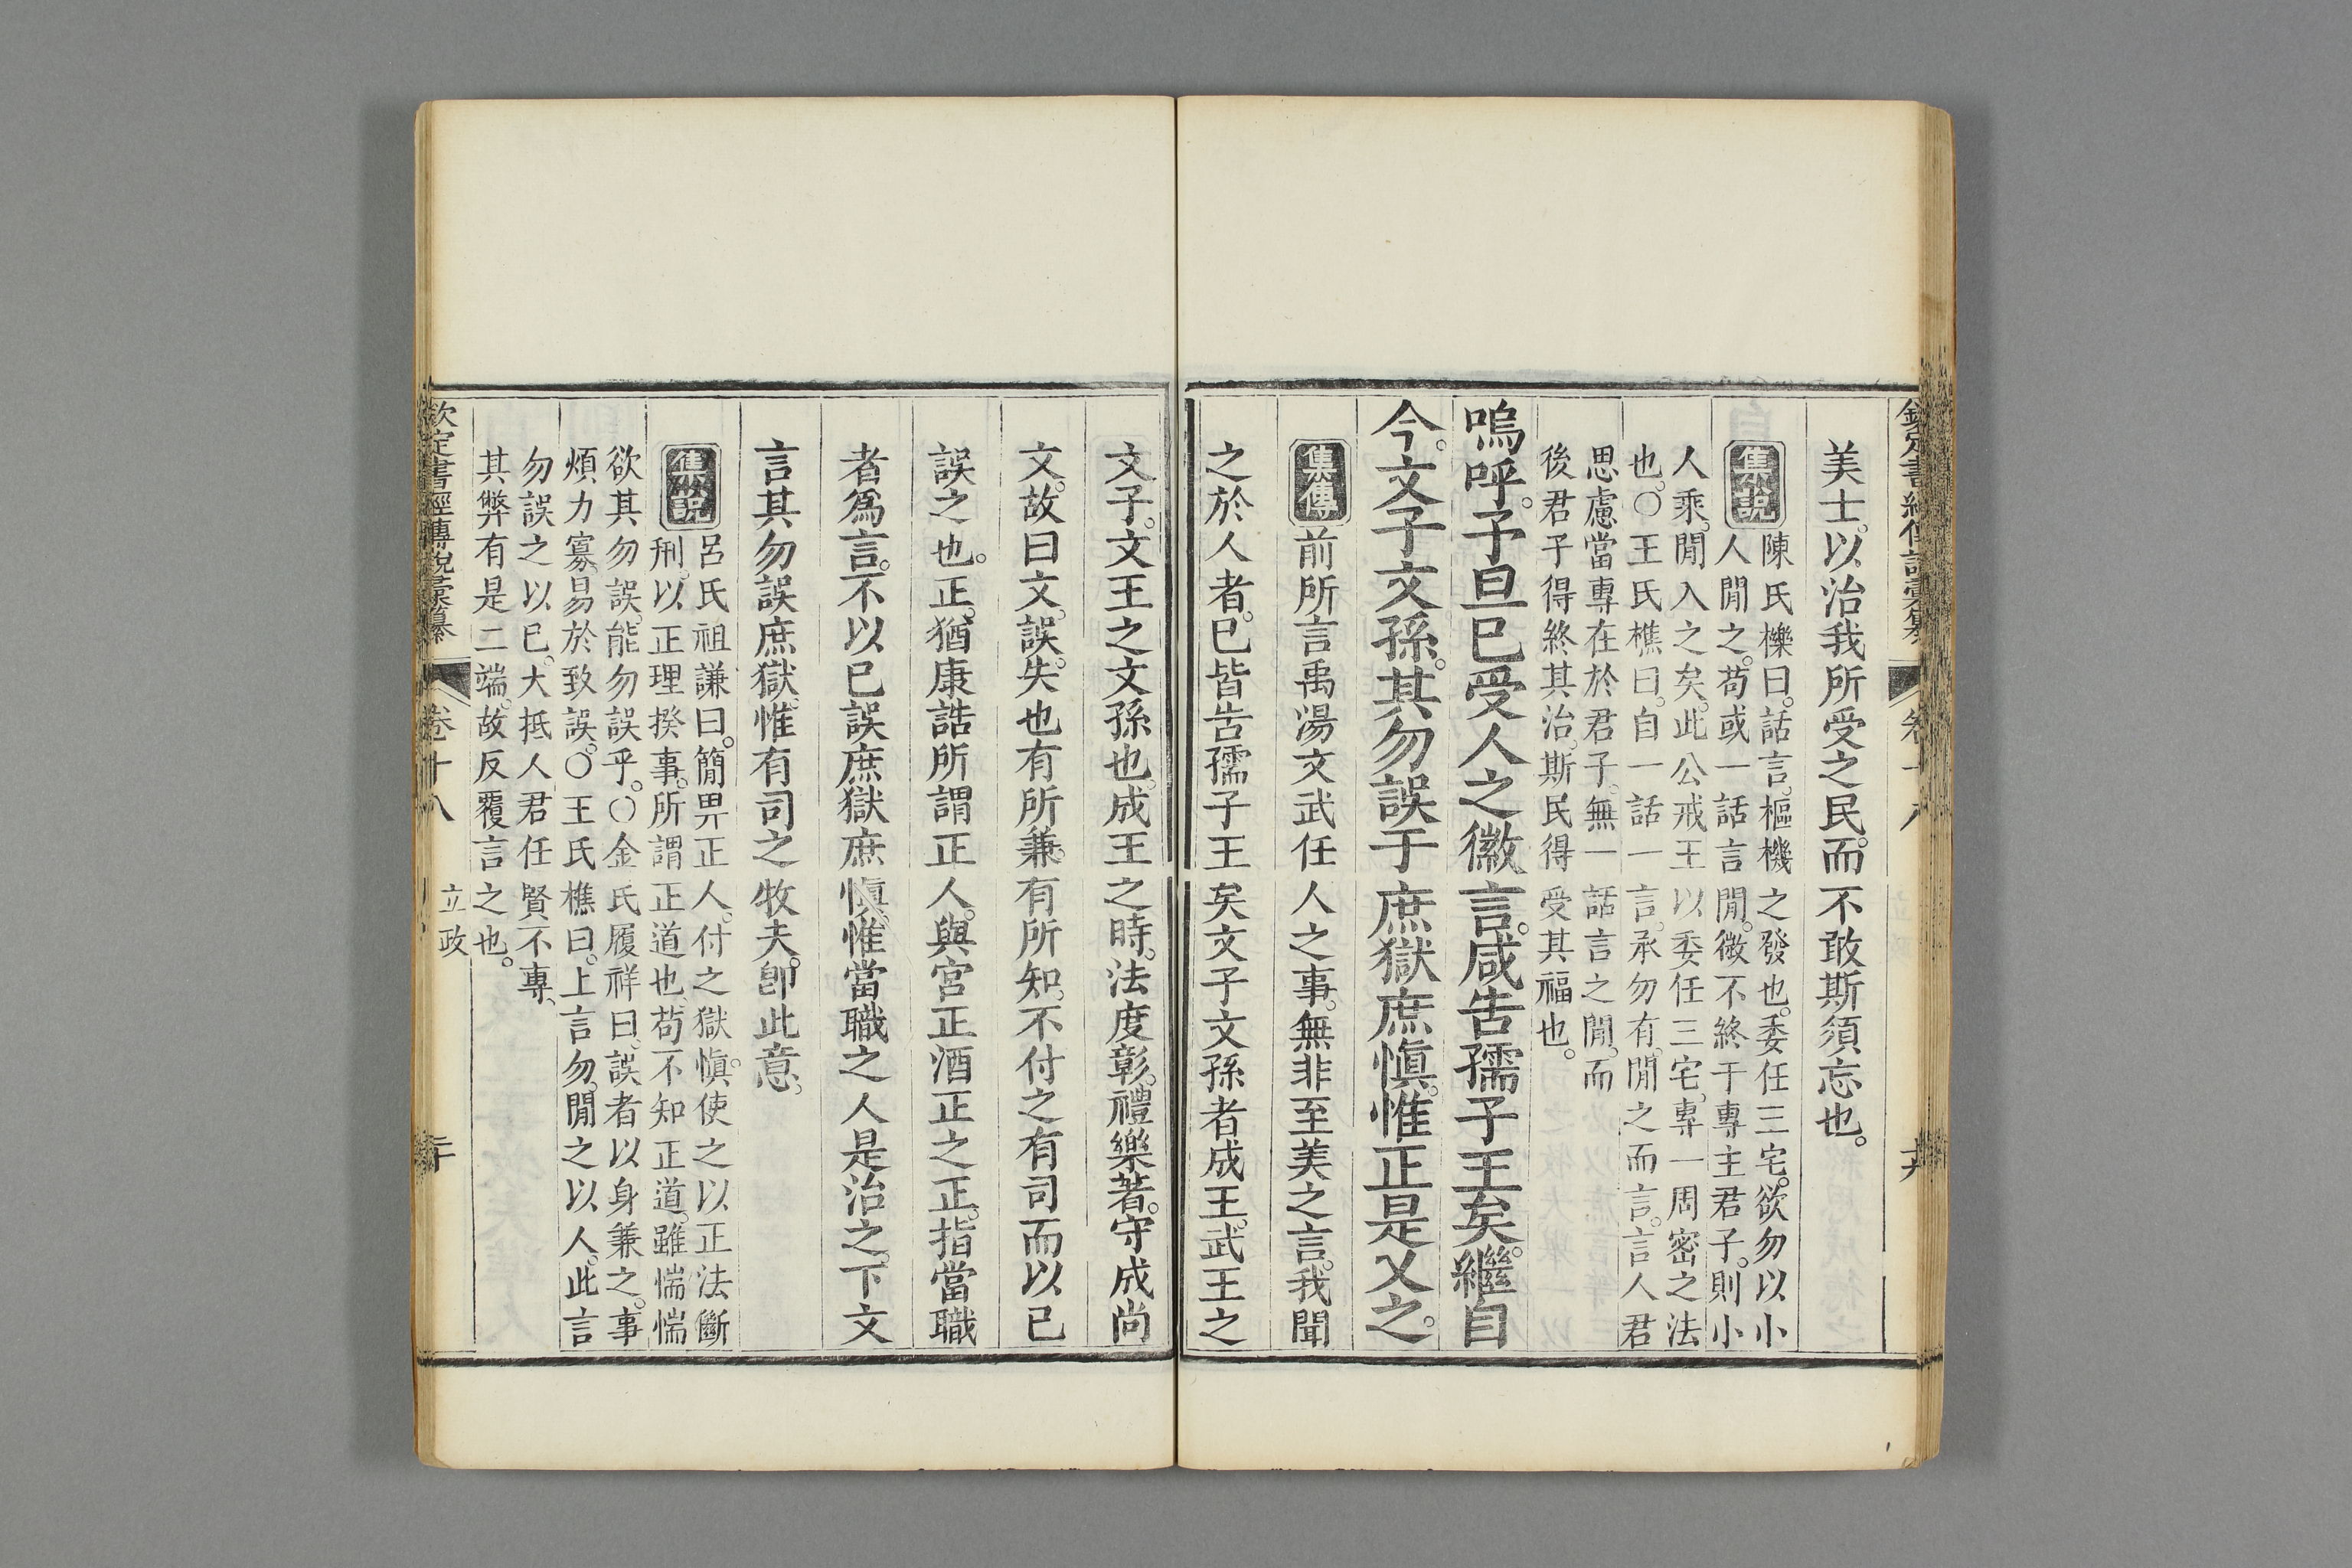 美士。以治我所受之民。而不敢斯須忘也。
集說
陳氏櫟曰。話言。樞機之發也。委任三宅。欲勿以小
人閒之。苟或一話言閒。微不終于專主君子。則小
人乘。閒入之矣。此公戒王以委任三宅。專一周密之法
也。〇王氏樵曰。自一話一言。承勿有閒之而言。言人君
思慮當專在於君子。無一話言之閒。而
後君子得終其治。斯民得受其福也。
嗚呼。予旦已受人之徽言。咸告孺子王矣。繼自
今。文子文孫。其勿誤于庶獄庶慎。惟正是乂之。
集傳
前所言禹湯文武任人之事。無非至美之言。我聞
之於人者。已皆告孺子王矣文子文孫者成王。武王之
文子。文王之文孫也。成王之時。法度彰。禮樂著。守成尚
文。故曰文。誤。失也有所兼。有所知。不付之有司而以已
誤之也。正。猶康誥所謂正人。與宮正酒正之正。指當職
者爲言。不以已誤庶獄庶慎。惟當職之人是治之。下文
言其勿誤庶獄。惟有司之牧夫。卽此意。
集說
呂氏祖謙曰。簡畀正人。付之獄慎。使之以正法斷
刑。以正理揆事。所謂正道也。苟不知正道。雖惴惴
欲其勿誤。能勿誤乎。〇金氏履祥曰。誤者以身兼之。事
煩力寡。易於致誤。〇王氏樵曰。上言勿閒之以人。此言
勿誤之以已。大抵人君任賢不專。
其弊有是二端。故反覆言之也。
欽定書經傳說彙纂
卷十八
立政
二十